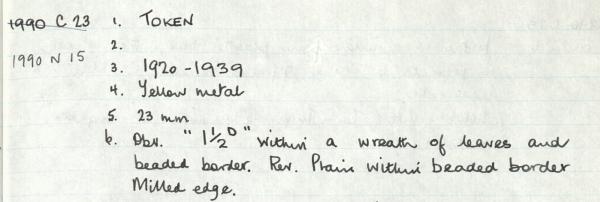 1990 C 23 1. TOKEN
2.
1990 N 15
3. 1920 - 1939
4. Yellow metal
5. 23 mm
6. Obv. "1½ᴰ" within a wreath of leaves and
beaded border. Rev. Plain within beaded border
Milled edge.